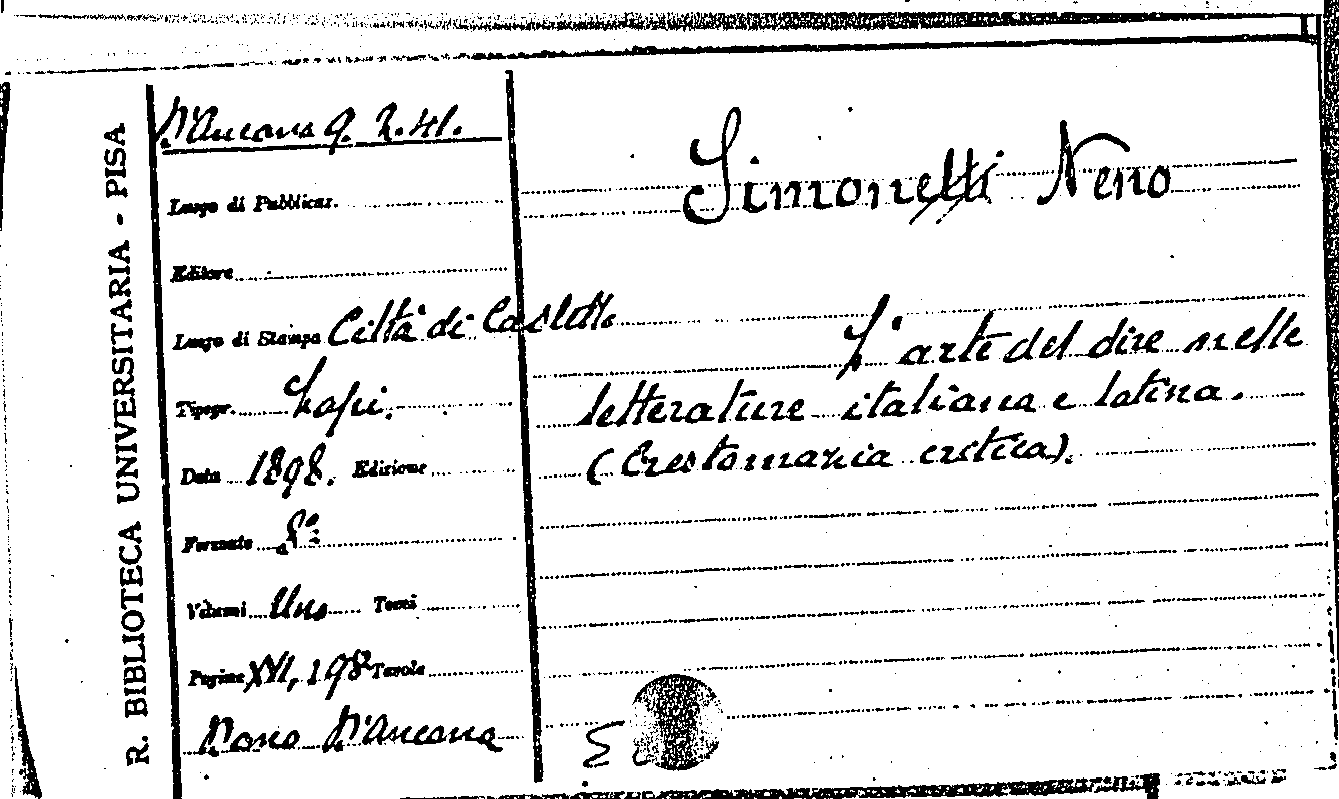 R. BIBLIOTECA UNIVERSITARIA - PISA
D'Ancona 9. 2. 41.
Luogo di Pubblicaz.
Editore
Luogo di Stampa Città di Castello.
Tipogr. Lapi.
Data 1898. Edizione
Formato 8°
Volumi Uno Tomi
Pagine XVI, 198 Tavole
Dono D'Ancona
Simonetti Neno
L'arte del dire nelle
letterature italiana e latina.
(Crestomazia critica).